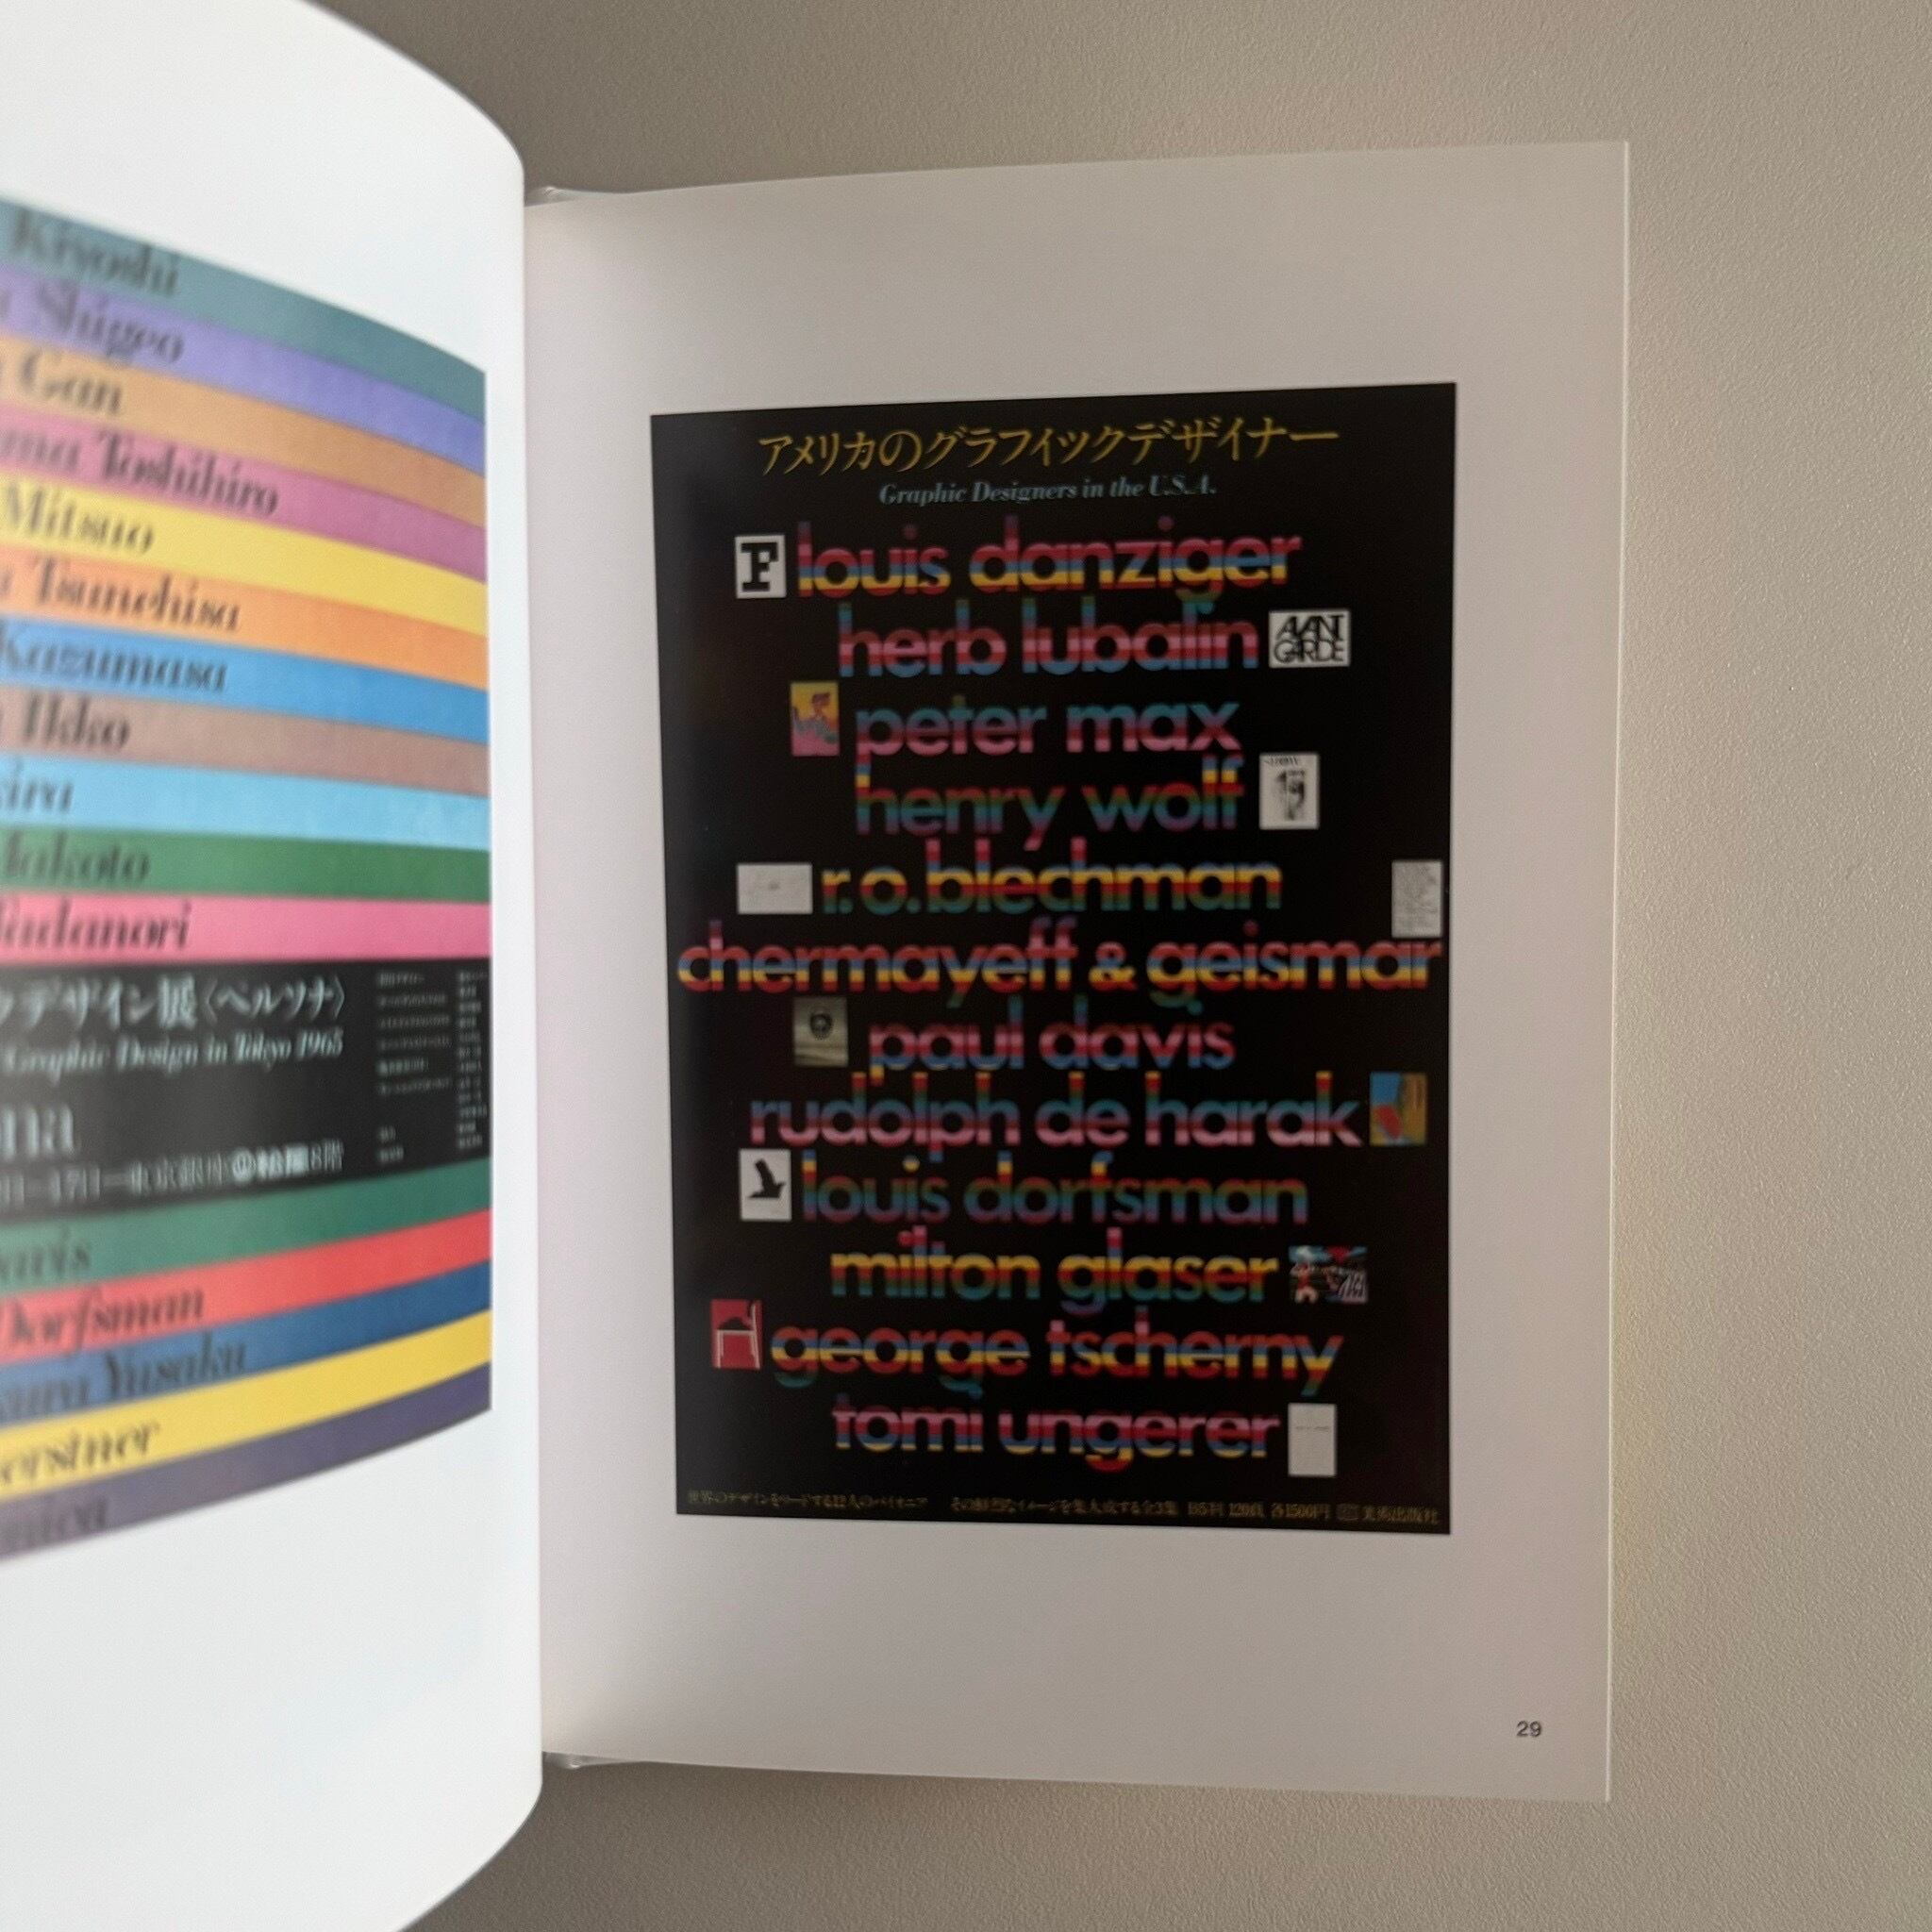 Kiyoshi
Shigeo
Gan
Toshihiro
Mitsuo
Tsunehisa
Kazumasa
Ikko
Makoto
Tadanori
デザイン展〈ペルソナ〉
Graphic Design in Tokyo 1965
17日―東京銀座 8階
Dorfsman
Yusaku
アメリカのグラフィックデザイナー
Graphic Designers in the U.S.A.
F louis danziger
herb lubalin AVANT GARDE
peter max
henry wolf SHOW
r.o.blechman
chermayeff & geismar
paul davis
rudolph de harak
louis dorfsman
milton glaser
george tscherny
tomi ungerer
世界のデザインをリードする12人のパイオニア その鮮烈なイメージを集大成する全3集 B5判 120頁 各1500円 美術出版社
29